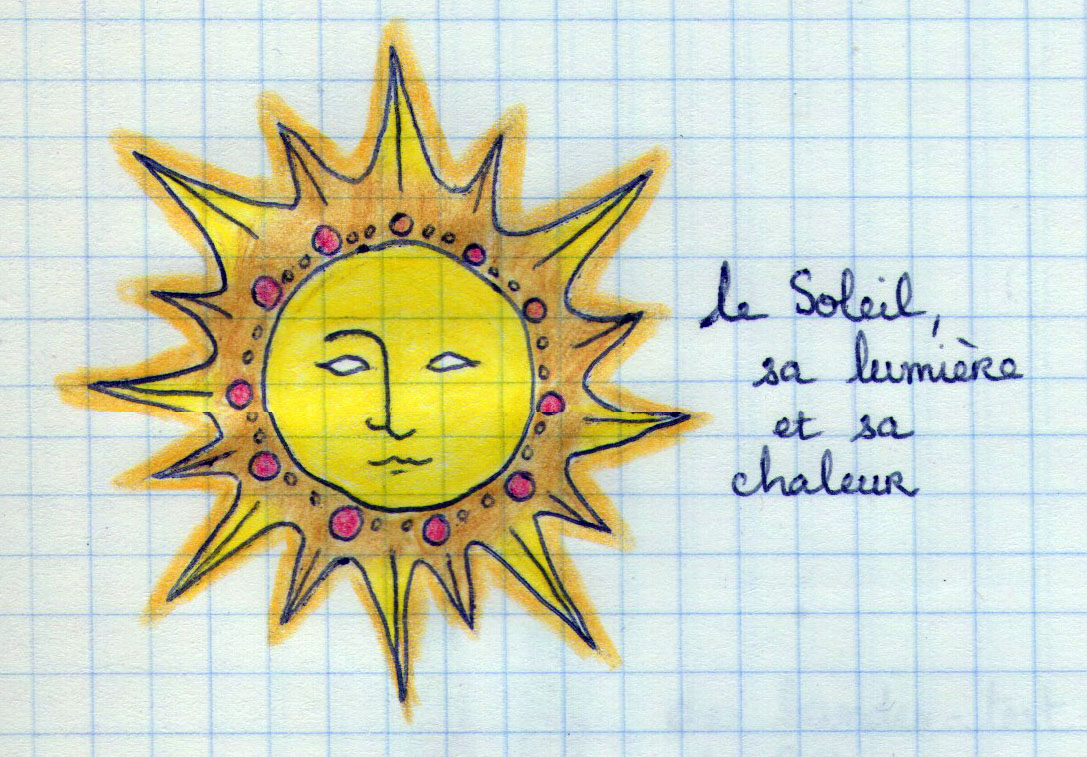 le Soleil,
sa lumière
et sa
chaleur